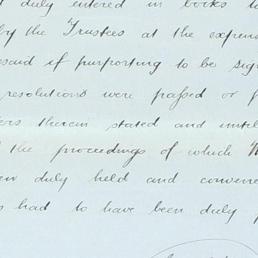 duly entered in books to
by the Trustees at the expen
esaid if purporting to be sig
resolutions were passed or
ers therein stated and until
the proceedings of which
duly held and convene
had to have been duly